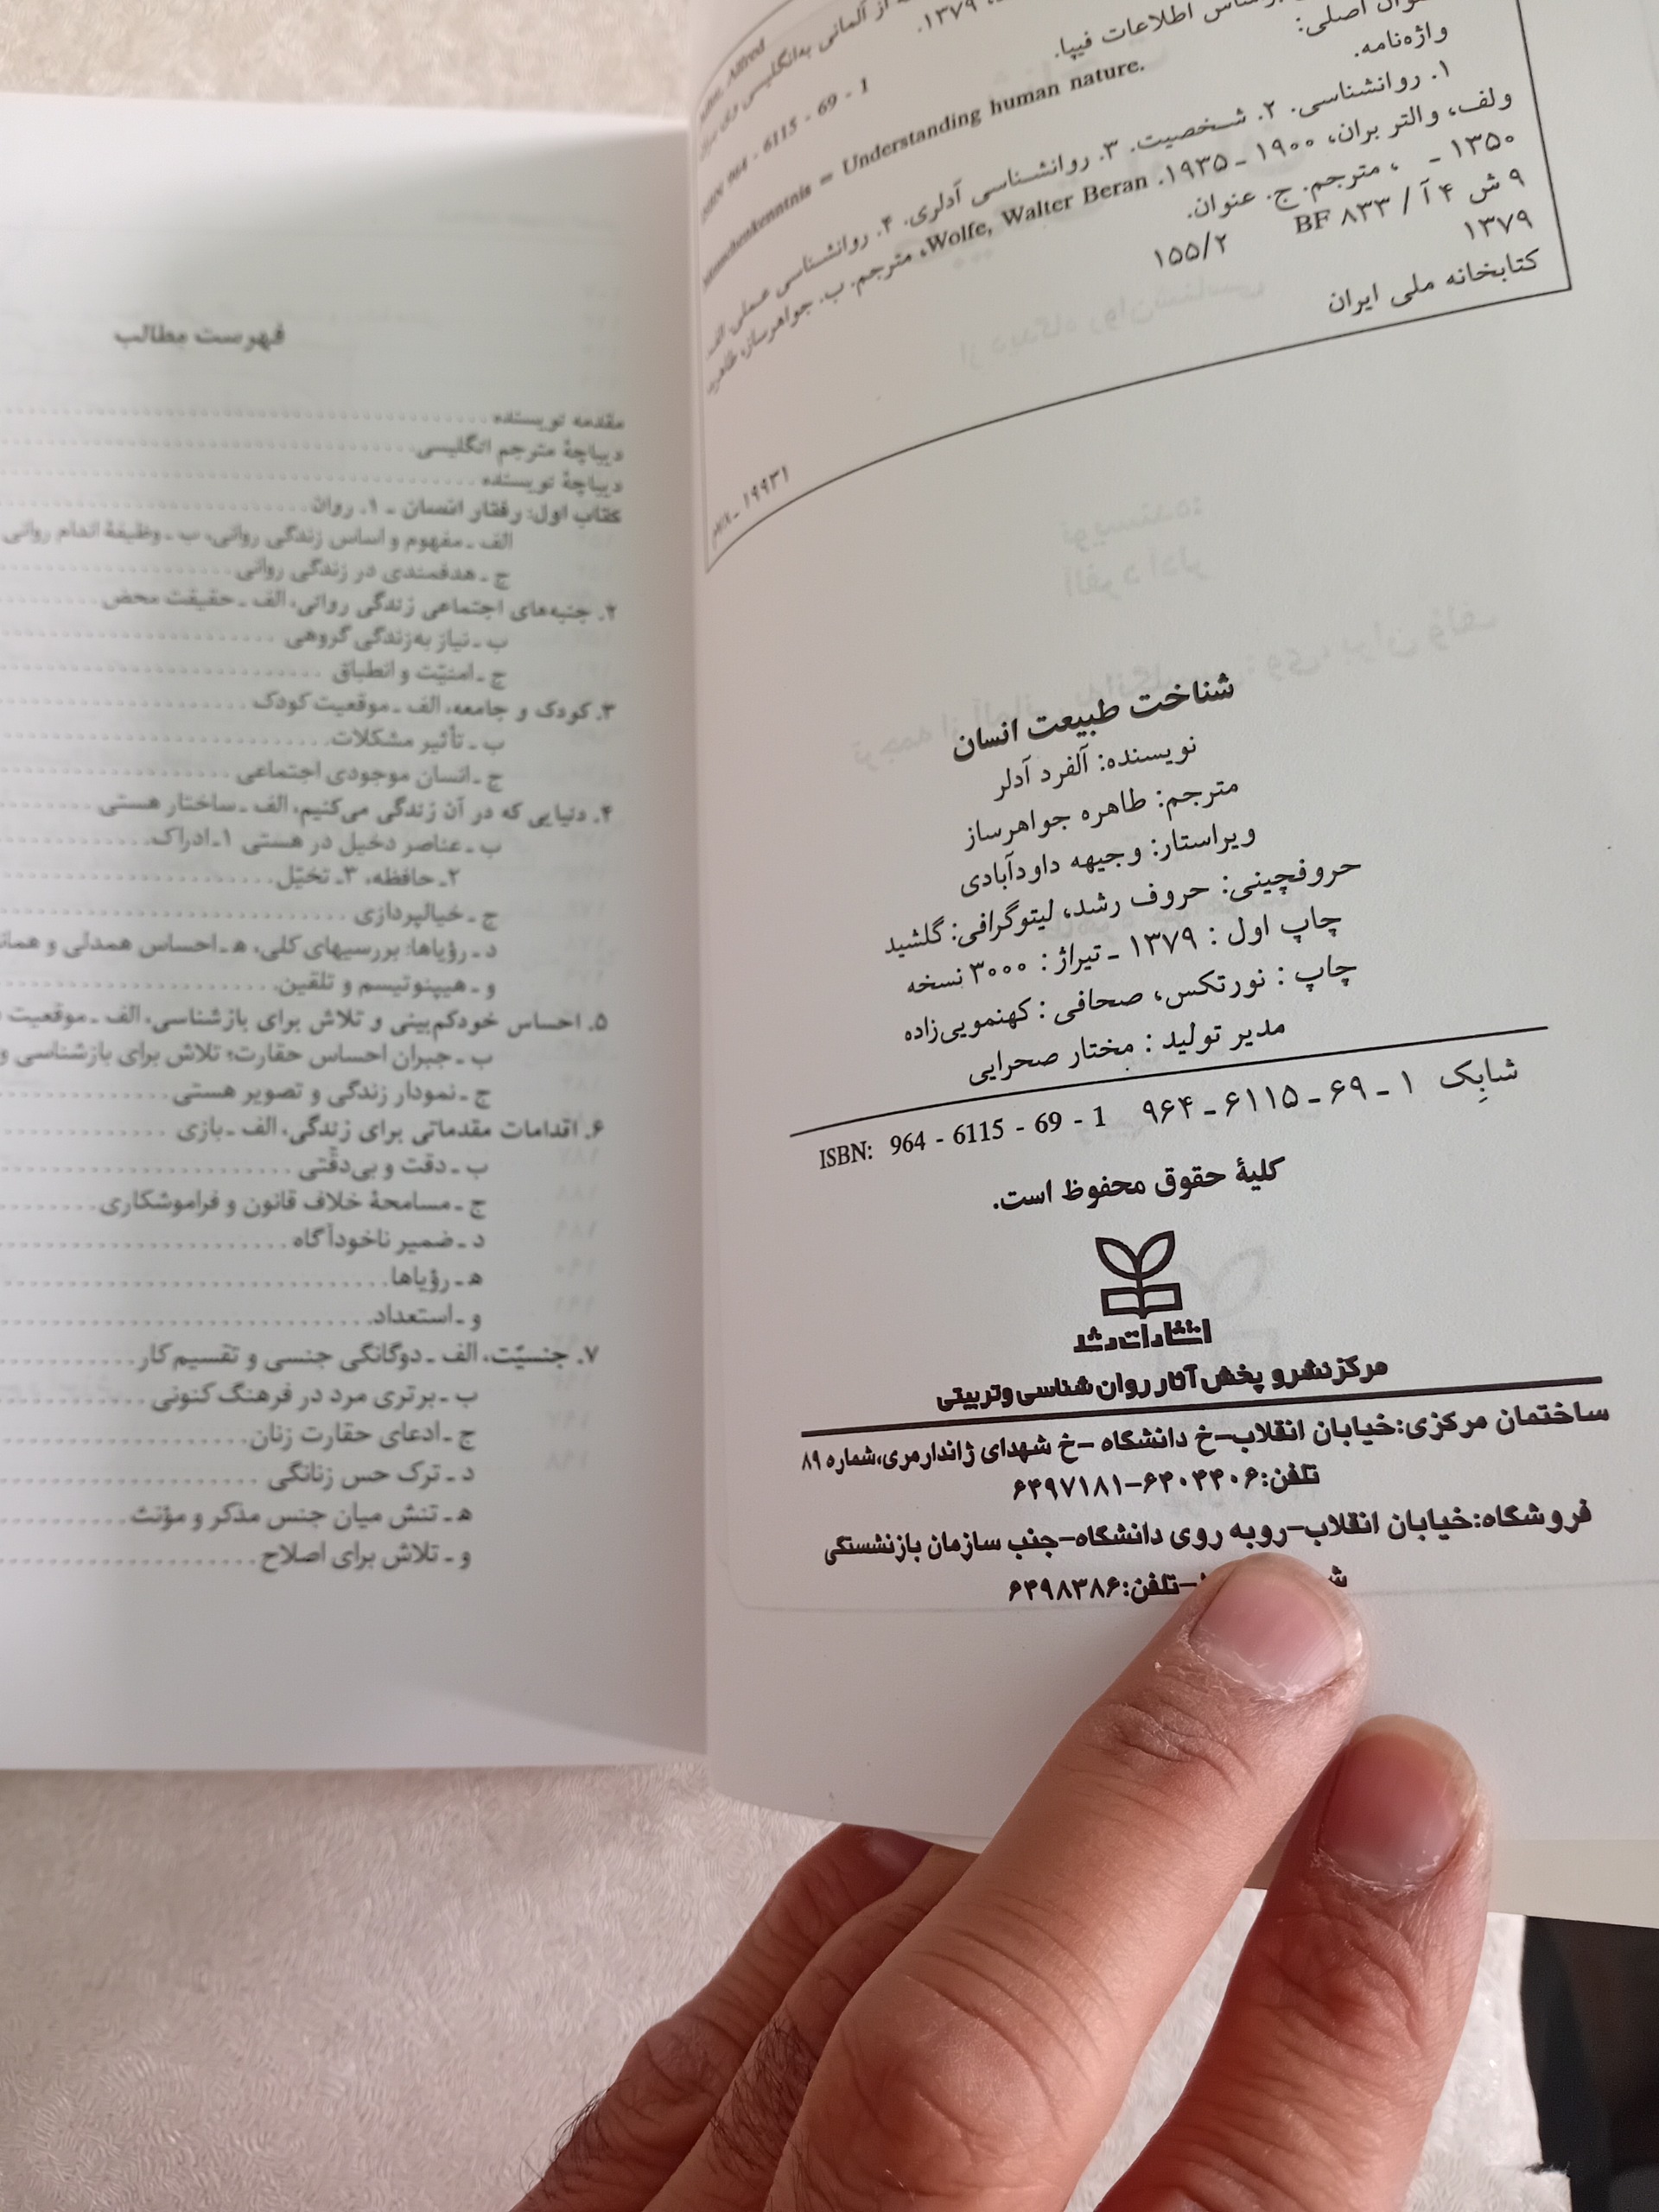 از آلمانی به‌انگلیسی
۱۳۷۹.
Alfred
ISBN 964 - 6115 - 69 - 1
اساس اطلاعات فیپا.
عنوان اصلی:
Menschenkenntnis = Understanding human nature.
واژه‌نامه.
۱. روانشناسی. ۲. شخصیت. ۳. روانشناسی آدلری. ۴. روانشناسی عملی. الف.
ولف، والتر بران، ۱۹۰۰ ـ ۱۹۳۵. Wolfe, Walter Beran، مترجم. ب. جواهرساز، طاهره،
۱۳۵۰ ـ ، مترجم. ج. عنوان.
۹ ش ۴ آ / ۸۳۳ BF
۱۵۵/۲
۱۳۷۹
کتابخانه ملی ایران
۱۹۹۳۱
شناخت طبیعت انسان
نویسنده: آلفرد آدلر
مترجم: طاهره جواهرساز
ویراستار: وجیهه داودآبادی
حروفچینی: حروف رشد، لیتوگرافی: گلشید
چاپ اول : ۱۳۷۹ ـ تیراژ : ۳۰۰۰ نسخه
چاپ : نورتکس، صحافی : کهنمویی‌زاده
مدیر تولید : مختار صحرایی
شابِک ۱ ـ ۶۹ ـ ۶۱۱۵ ـ ۹۶۴ ISBN: 964 - 6115 - 69 - 1
کلیهٔ حقوق محفوظ است.
انتشارات رشد
مرکز نشر و پخش آثار روان شناسی و تربیتی
ساختمان مرکزی:خیابان انقلاب-خ دانشگاه -خ شهدای ژاندارمری،شماره ۸۹
تلفن:۶۴۰۴۴۰۶-۶۴۹۷۱۸۱
فروشگاه:خیابان انقلاب-روبه روی دانشگاه-جنب سازمان بازنشستگی
-تلفن:۶۴۹۸۳۸۶
فهرست مطالب
مقدمه نویسنده
دیباچهٔ مترجم انگلیسی
دیباچهٔ نویسنده
کتاب اول: رفتار انسان ـ ۱. روان
الف ـ مفهوم و اساس زندگی روانی، ب ـ وظیفهٔ اندام روانی
ج ـ هدفمندی در زندگی روانی
۲. جنبه‌های اجتماعی زندگی روانی، الف ـ حقیقت محض
ب ـ نیاز به‌زندگی گروهی
ج ـ امنیّت و انطباق
۳. کودک و جامعه، الف ـ موقعیت کودک
ب ـ تأثیر مشکلات
ج ـ انسان موجودی اجتماعی
۴. دنیایی که در آن زندگی می‌کنیم، الف ـ ساختار هستی
ب ـ عناصر دخیل در هستی ۱ـ ادراک
۲ـ حافظه، ۳ـ تخیّل
ج ـ خیالپردازی
د ـ رؤیاها: بررسیهای کلی، ه ـ احساس همدلی و
و ـ هیپنوتیسم و تلقین
۵. احساس خودکم‌بینی و تلاش برای بازشناسی، الف ـ موقعیت
ب ـ جبران احساس حقارت؛ تلاش برای بازشناسی و
ج ـ نمودار زندگی و تصویر هستی
۶. اقدامات مقدماتی برای زندگی، الف ـ بازی
ب ـ دقت و بی‌دقّتی
ج ـ مسامحهٔ خلاف قانون و فراموشکاری
د ـ ضمیر ناخودآگاه
ه ـ رؤیاها
و ـ استعداد
۷. جنسیّت، الف ـ دوگانگی جنسی و تقسیم کار
ب ـ برتری مرد در فرهنگ کنونی
ج ـ ادعای حقارت زنان
د ـ ترک حس زنانگی
ه ـ تنش میان جنس مذکر و مؤنث
و ـ تلاش برای اصلاح